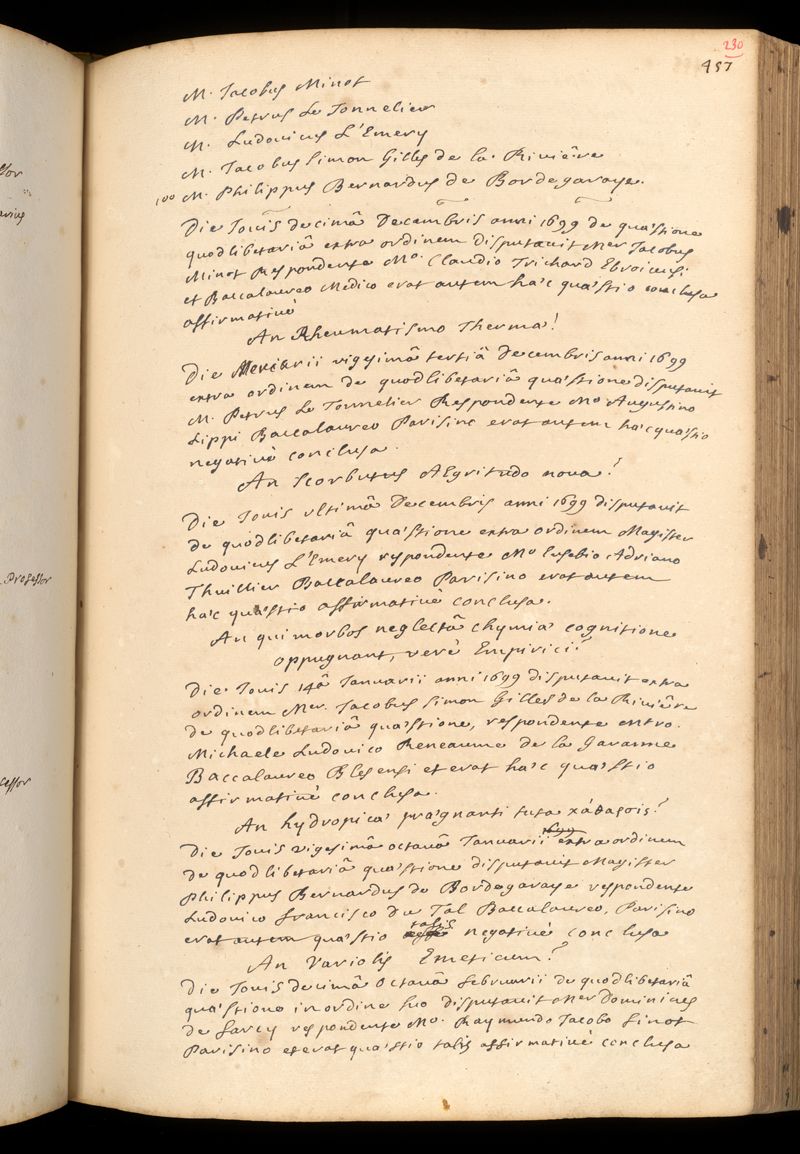 230
457
M. Jacobus Minot
M. Petrus Le Tonnelier
M. Ludovicus L'Emery
M. Jacobus Simon Gilles de la Rivière
100 M. Philippus Bernardus de Bordegaraye.
Die Jovis decimâ Decembris anni 1699 de quæstione
quodlibetariâ extra ordinem disputavit Mer Jacobus
Minot Respondente Mo. Claudio Trichard Ebroicensi
et Baccalaureo Medico erat autem hæc quæstio conclusa
affirmativè
An Rheumatismo Thermæ!
Die Mercurii vigesimâ tertiâ Decembris anni 1699
extra ordinem de quodlibetariâ quæstione disputavit
M. Petrus Le Tonnelier Respondente Mo Augustino
Lippi Baccalaureo Parisino erat autem hæc quæstio
negativè conclusa.
An Scorbutus Ægritudo nova?
Die Jovis ultimâ Decembris anni 1699 disputavit
de quodlibetariâ quæstione extra ordinem Magister
Ludovicus L'Emery respondente Mo Eusebio Adriano
Thuillier Baccalaureo Parisino erat autem
hæc quæstio affirmativè conclusa.
An qui morbos neglectâ chymiæ cognitione
oppugnant, verè Empirici?
Die Jovis 14â Januarii anni 1699 disputavit extra
ordinem Mer. Jacobus Simon Gilles de la Rivière
de quodlibetariâ quæstione, respondente Mtro.
Michaele Ludovico Reneaume de la Garanne
Baccalaureo Blesensi et erat hæc quæstio
affirmativè conclusa.
An hydropicæ prægnanti tuta κάθαρσις?
Die Jovis vigesimâ octavâ Januarii 1699 extra ordinem
de quodlibetariâ quæstione disputavit Magister
Philippus Bernardus de Bordegaraye respondente
Ludovico francisco Du Tal Baccalaureo, Parisino
erat autem quæstio talis negativè conclusa
An Variolis Emeticum?
Die Jovis decimâ octavâ februarii de quodlibetariâ
quæstione in ordine suo disputavit Mer Dominicus
de farcy respondente Mo. Raymundo Jacobo finot
Parisino et erat quæstio talis affirmativè conclusa
Professor